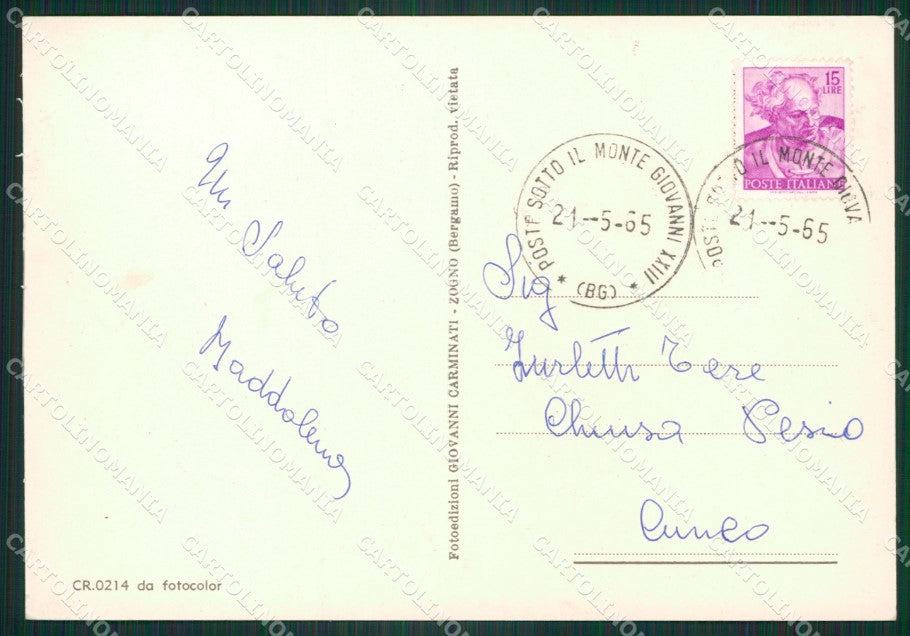 Un
Saluto
Maddalena
CR.0214 da fotocolor
Fotoedizioni GIOVANNI CARMINATI - ZOGNO (Bergamo) - Riprod. vietata
POSTE SOTTO IL MONTE GIOVANNI XXIII
21--5-65
* (BG) *
15
LIRE
POSTE ITALIANE
POSTE SOTTO IL MONTE GIOVA
21--5-65
Sig
Zurletti Tere
Chiusa Pesio
Cuneo
CARTOLINOMANIA